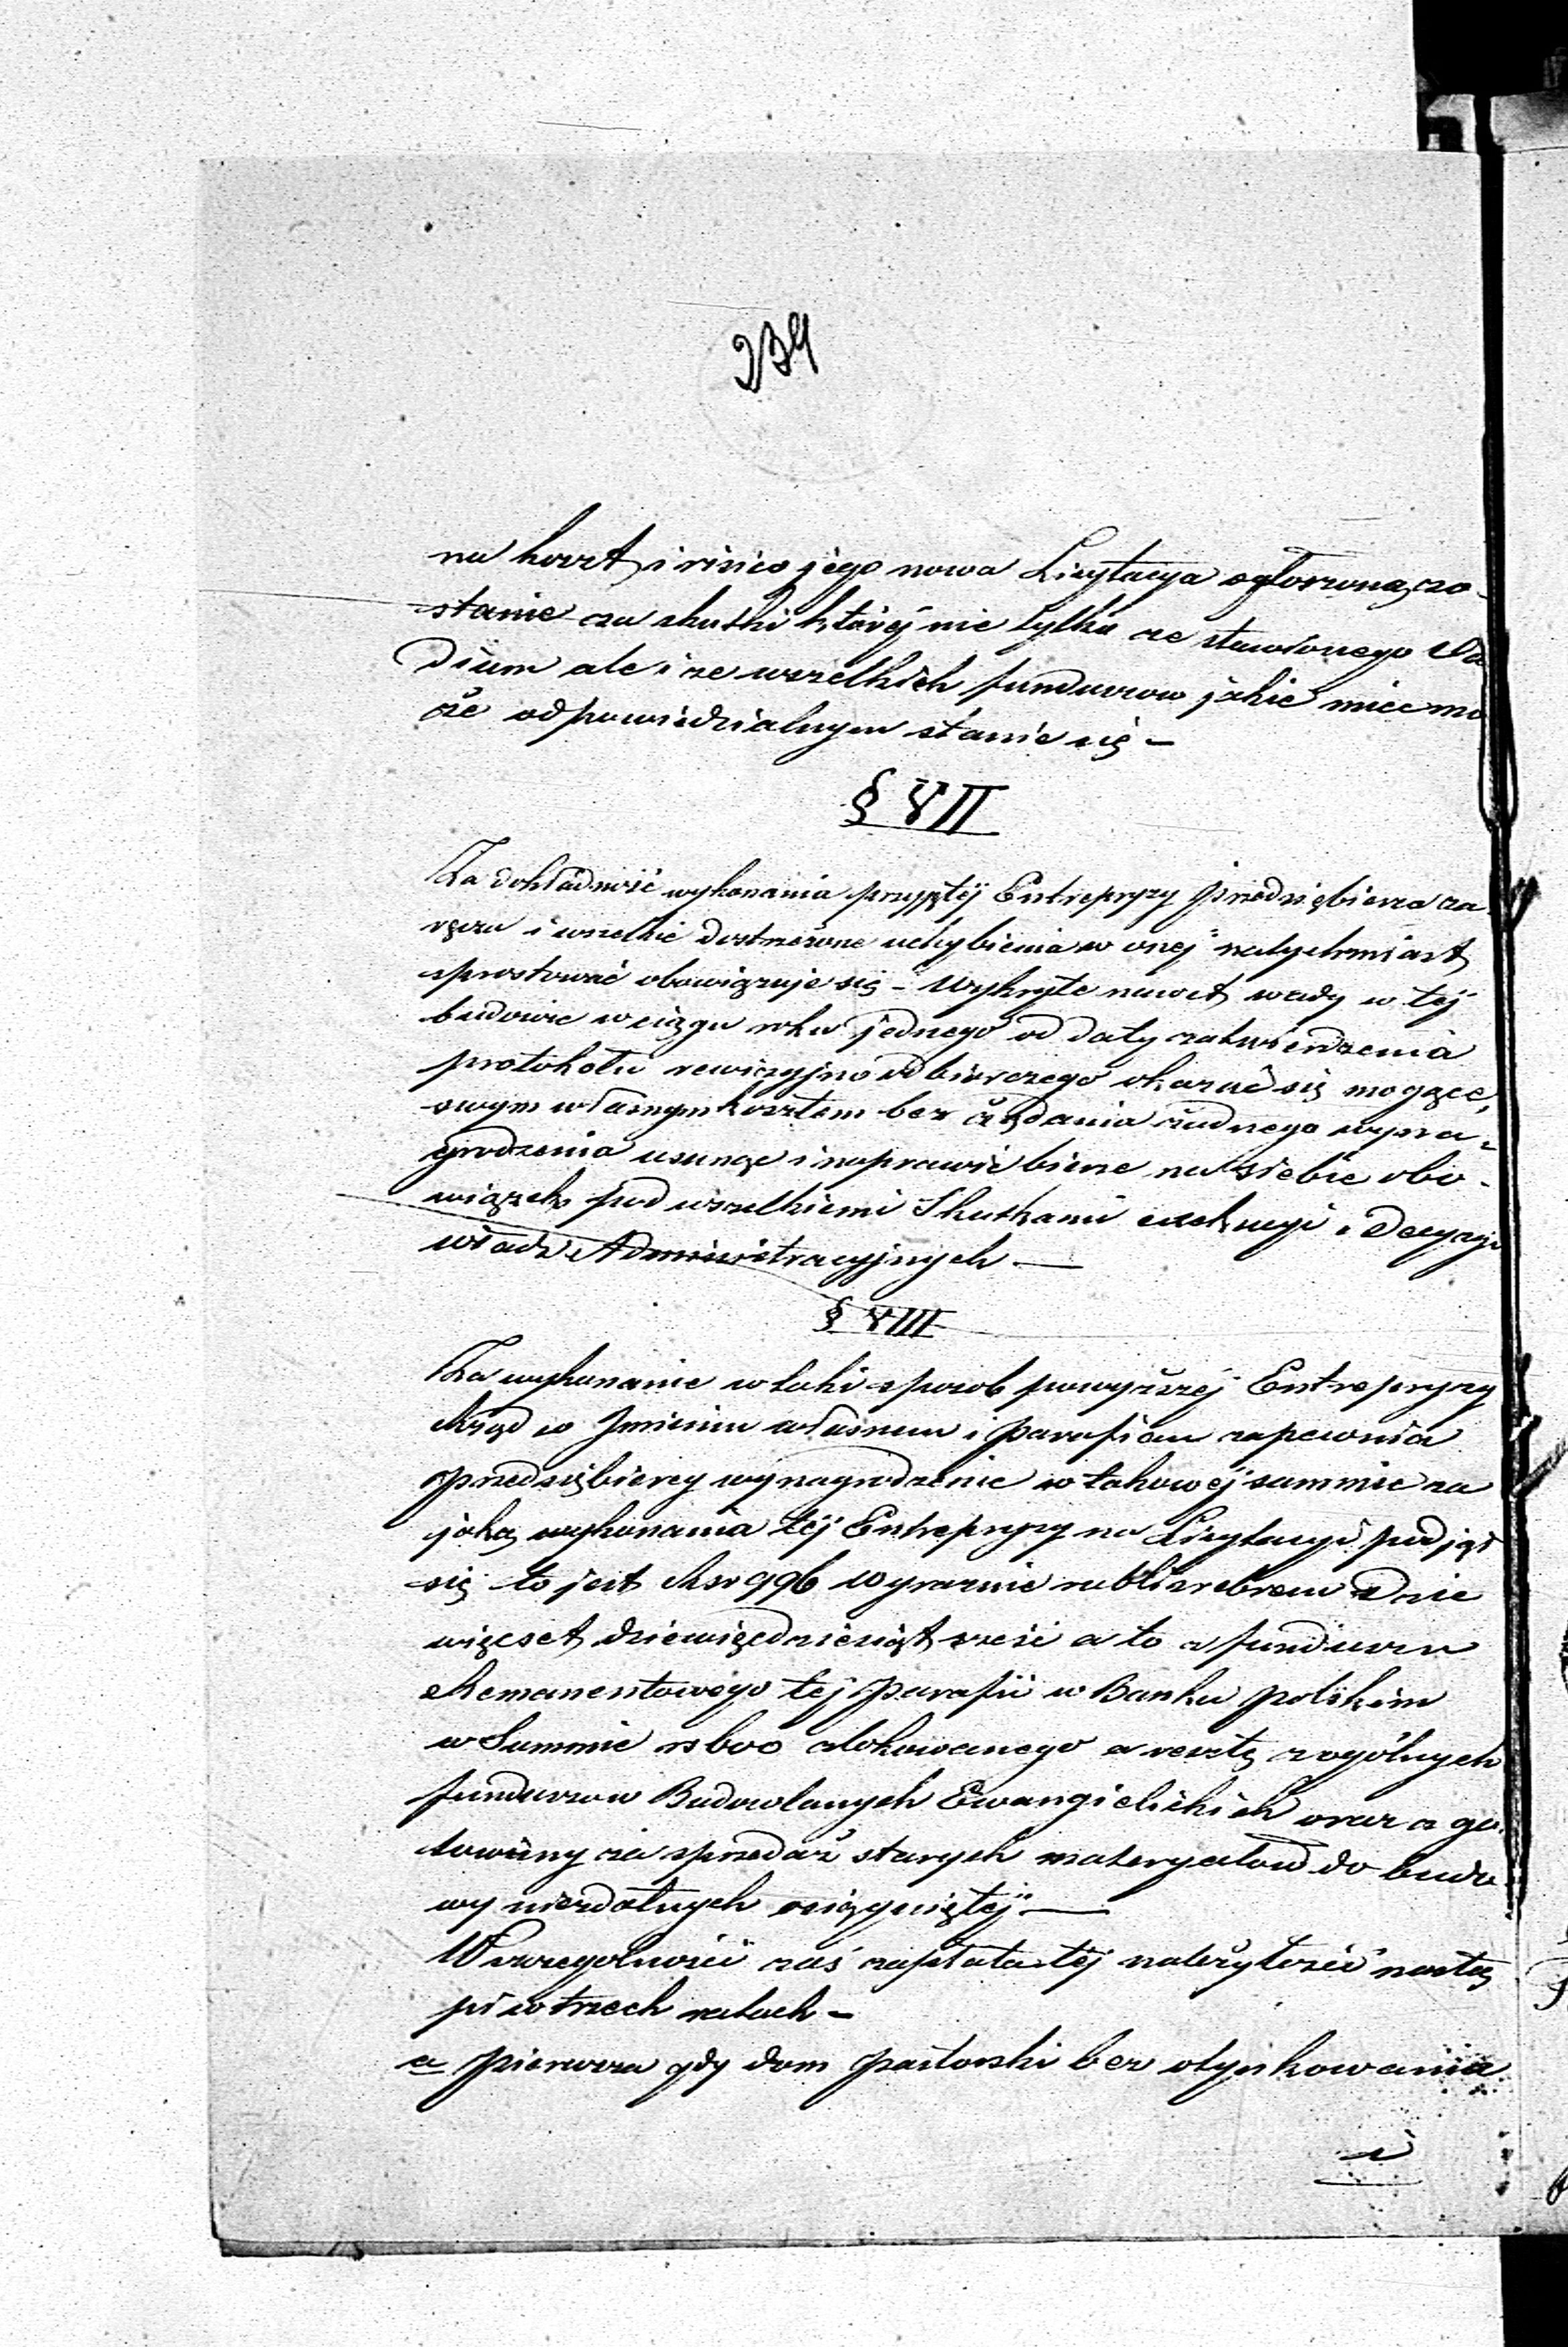 234
na koszt i risico jego nowa Licytacya ogłoszoną zo-
stanie za skutki której nie tylko ze stawionego Va
dium ale i ze wszelkich funduszow jakie mieć mo
że odpowiedzialnym stanie się –
§ VII
Za dokładność wykonania przyjętéj Entrepryzy Przedsiębierca za-
ręcza i wszelkie dostrzeżone uchybienia w onej natychmiast
sprostować obowiązuje się – Wykryte nawet wady w téj
budowie w ciągu roku jednego od daty zatwierdzenia
protokołu rewizyjno odbiorczego okazać się mogące,
swym własnym kosztem bez żądania żadnego wyna-
grodzenia usunąć i naprawić bierze na siebie obo-
wiązek pod wszelkiemi Skutkami exekucyi i Decyzji
władz Administracyjnych —
§ VIII
Za wykonanie w taki sposob powyższéj Entrepryzy
Rząd w Imieniu własnem i Parafian zapewnia
Przedsiębiercy wynagrodzenie w takowéj summie za
jaką wykonania téj Entrepryzy na Licytacyi podjął
się to jest Rsr 996 wyraznie rubli srebrem Dzie
więcset dziewięcdziesiąt sześć a to z funduszu
Remanentowego téj Parafii w Banku polskim
w Summie rs 600 alokowanego a resztę z ogólnych
funduszow Budowlanych Ewangielickich oraz z go-
towizny za sprzedaż starych materyałow do budo
wy niezdatnych osiągniętéj —
W szczegolności zaś zapłata téj należytości nastą
pi w trzech ratach –
a Pierwsza gdy dom Pastorski bez otynkowania
i